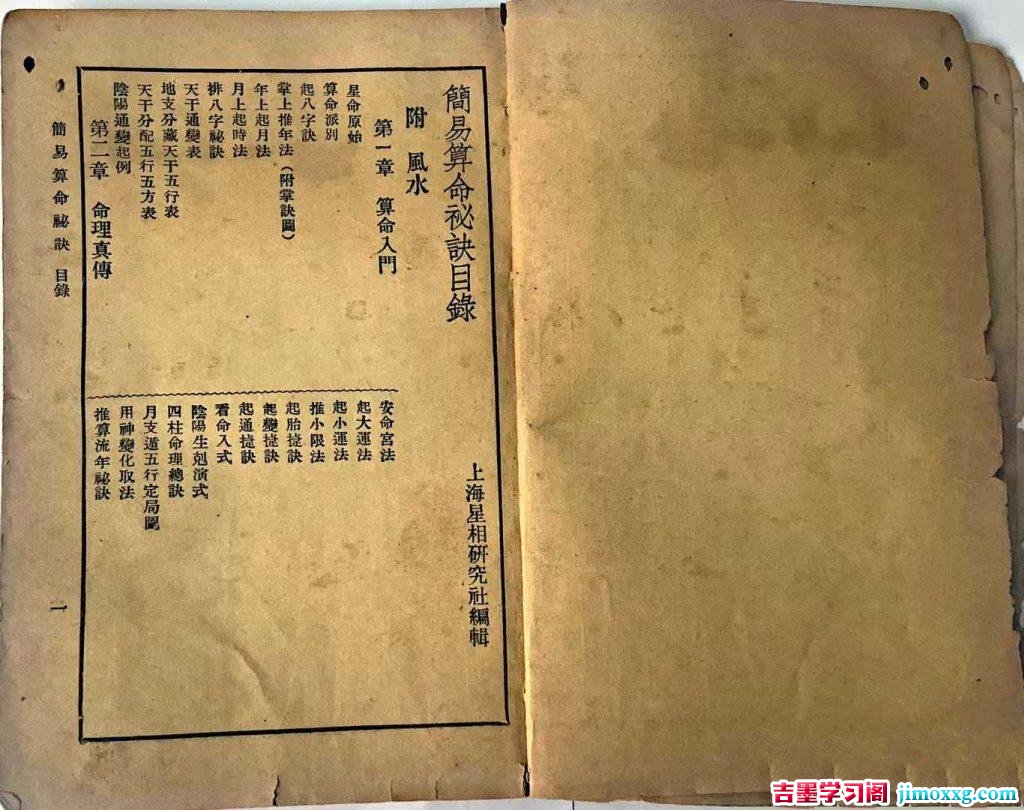 簡易算命祕訣目錄
附　風水
上海星相研究社編輯
第一章　算命入門
星命原始
算命派別
起八字訣
掌上推年法（附掌訣圖）
年上起月法
月上起時法
排八字祕訣
天干通變表
地支分藏天干五行表
天干分配五行五方表
陰陽通變起例
安命宮法
起大運法
起小運法
推小限法
起胎㨗訣
起變㨗訣
起通㨗訣
看命入式
陰陽生剋演式
四柱命理總訣
月支遁五行定局圖
用神變化取法
推算流年祕訣
第二章　命理真傳
簡易算命祕訣　目錄
一
吉墨学习阁 jimoxxg.com